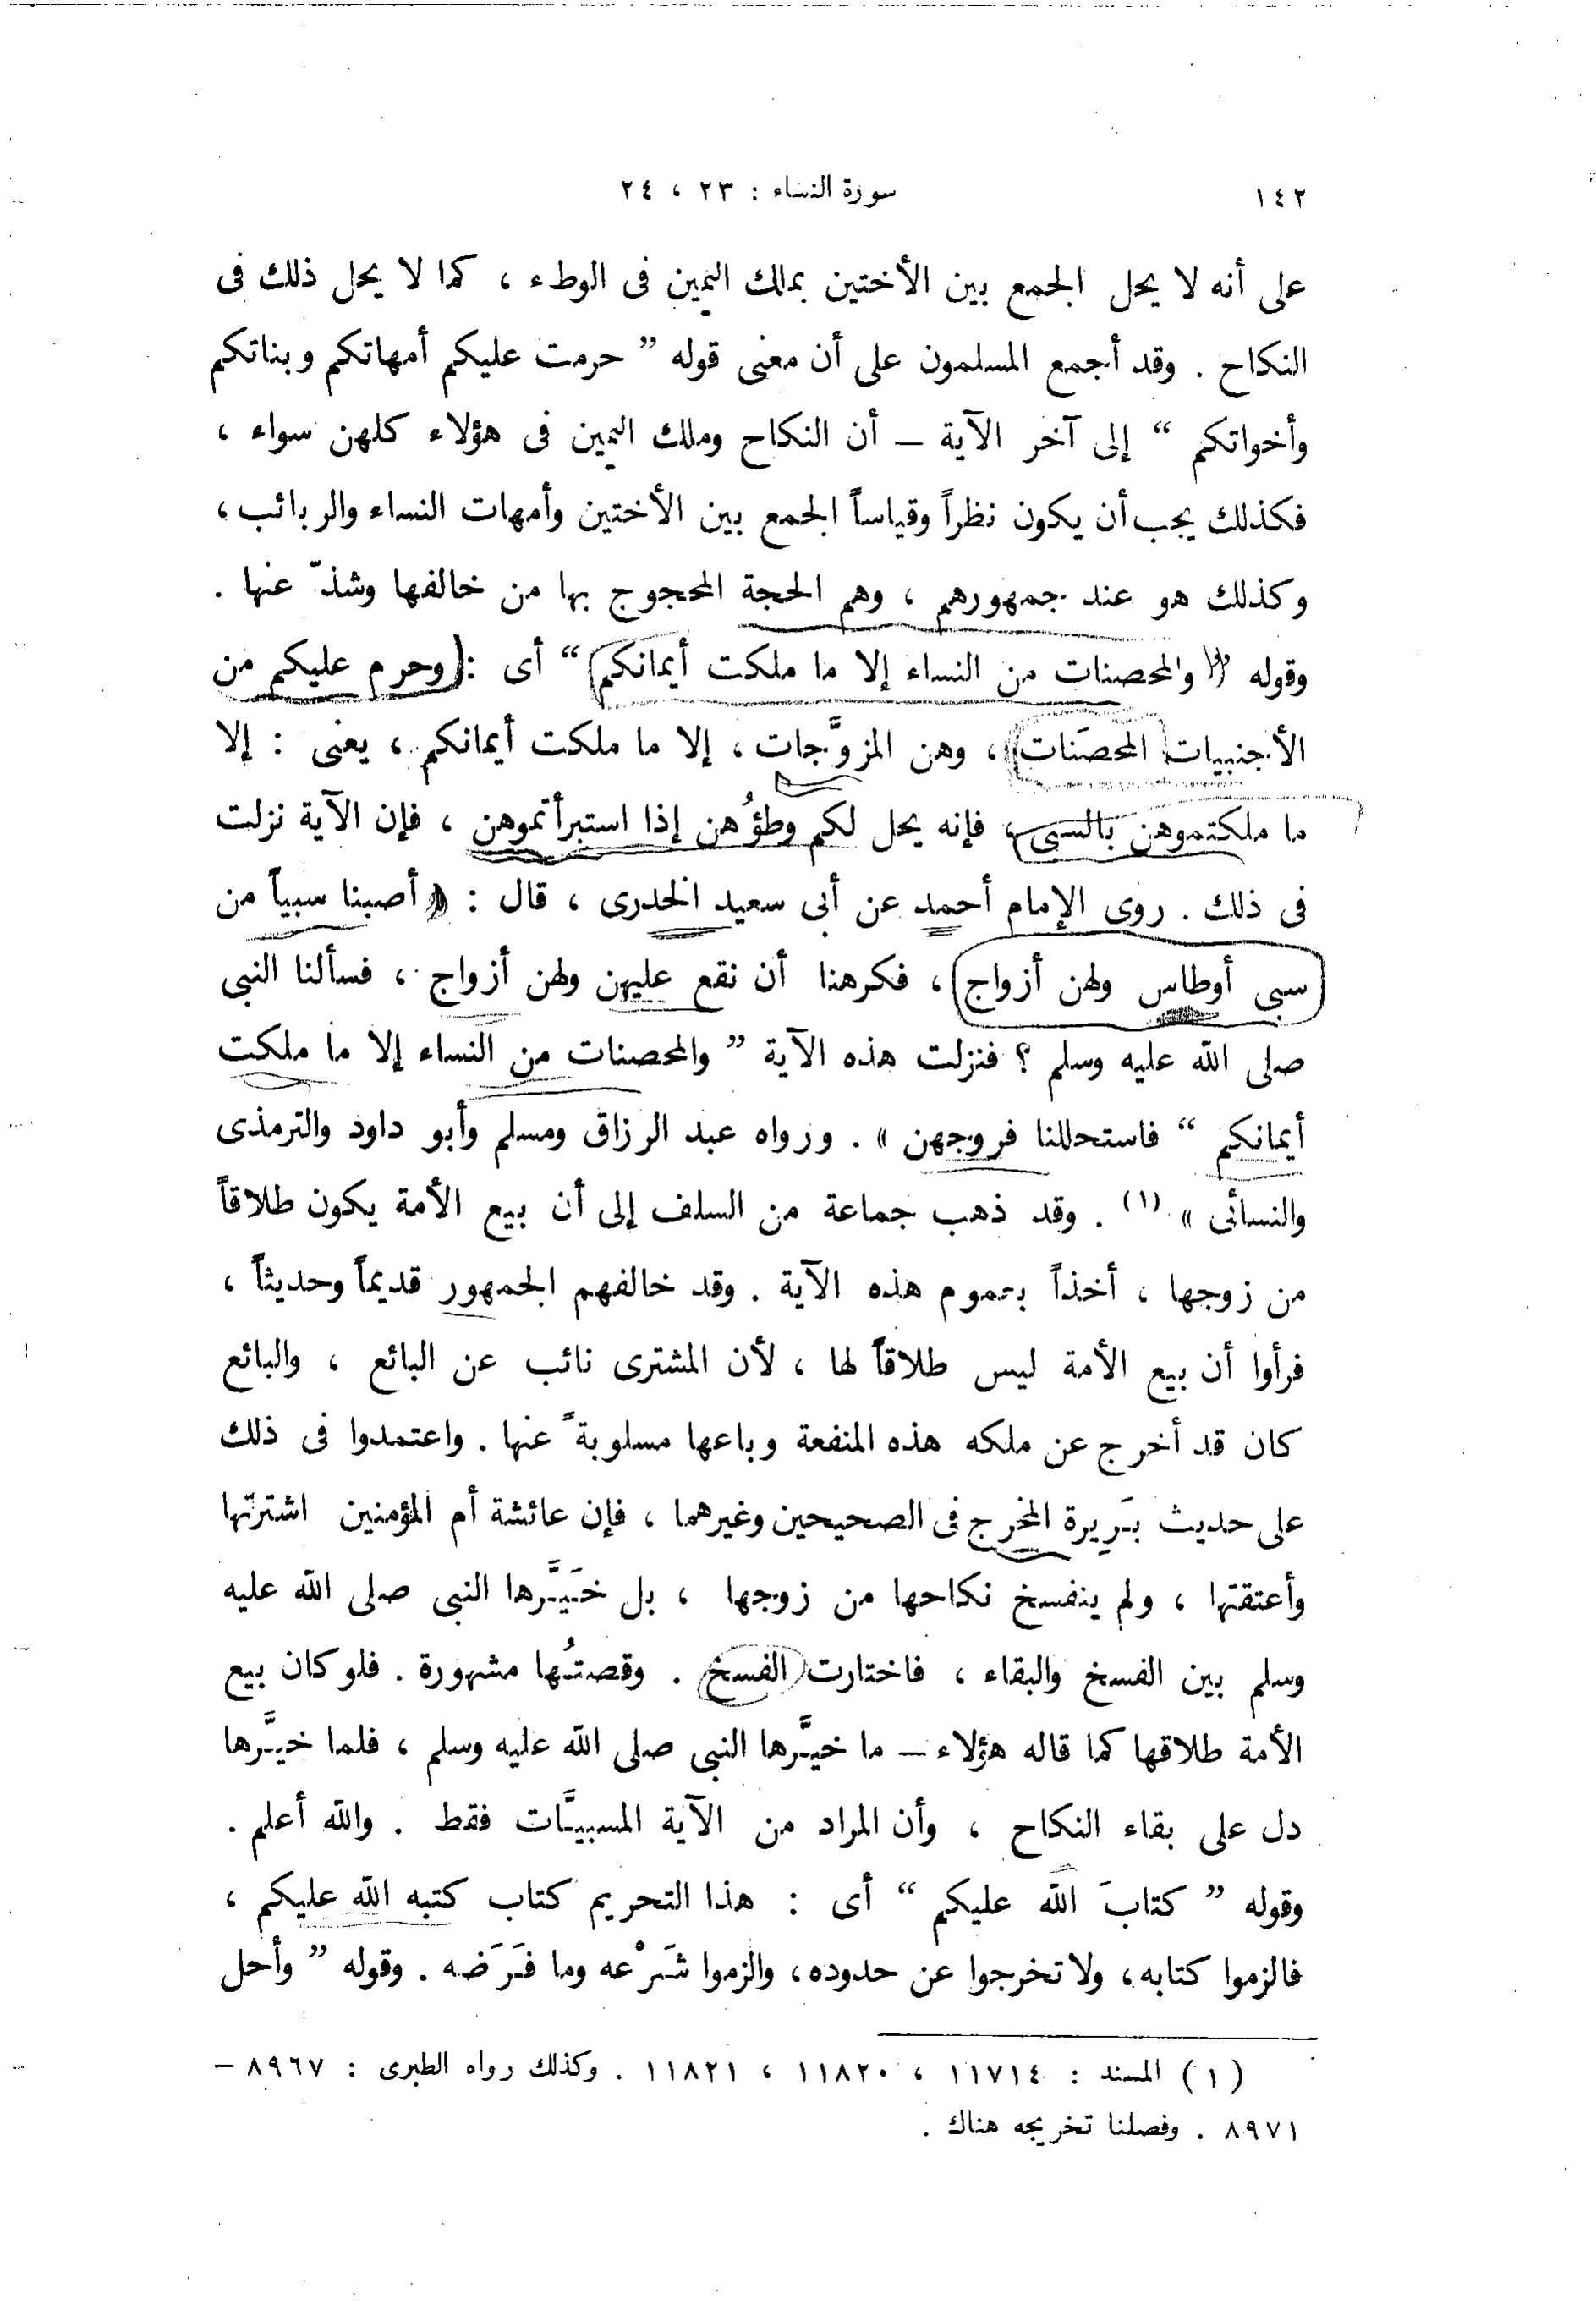 ١٤٢ سورة النساء : ٢٣ ، ٢٤
على أنه لا يحل الجمع بين الأختين بملك اليمين فى الوطء ، كما لا يحل ذلك فى
النكاح . وقد أجمع المسلمون على أن معنى قوله ” حرمت عليكم أمهاتكم وبناتكم
وأخواتكم “ إلى آخر الآية – أن النكاح وملك اليمين فى هؤلاء كلهن سواء ،
فكذلك يجب أن يكون نظراً وقياساً الجمع بين الأختين وأمهات النساء والربائب ،
وكذلك هو عند جمهورهم ، وهم الحجة المحجوج بها من خالفها وشذّ عنها .
وقوله ” والمحصنات من النساء إلا ما ملكت أيمانكم “ أى : وحرم عليكم من
الأجنبيات المحصَنات ، وهن المزوَّجات ، إلا ما ملكت أيمانكم ، يعنى : إلا
ما ملكتموهن بالسبى ، فإنه يحل لكم وطؤُهن إذا استبرأتموهن ، فإن الآية نزلت
فى ذلك . روى الإمام أحمد عن أبى سعيد الخدرى ، قال : « أصبنا سبياً من
سبى أوطاس ولهن أزواج ، فكرهنا أن نقع عليهن ولهن أزواج ، فسألنا النبى
صلى الله عليه وسلم ؟ فنزلت هذه الآية ” والمحصنات من النساء إلا ما ملكت
أيمانكم “ فاستحللنا فروجهن » . ورواه عبد الرزاق ومسلم وأبو داود والترمذى
والنسائى » (١) . وقد ذهب جماعة من السلف إلى أن بيع الأمة يكون طلاقاً
من زوجها ، أخذاً بعموم هذه الآية . وقد خالفهم الجمهور قديماً وحديثاً ،
فرأوا أن بيع الأمة ليس طلاقاً لها ، لأن المشترى نائب عن البائع ، والبائع
كان قد أخرج عن ملكه هذه المنفعة وباعها مسلوبةً عنها . واعتمدوا فى ذلك
على حديث بَرِيرة المخرج فى الصحيحين وغيرهما ، فإن عائشة أم المؤمنين اشترتها
وأعتقتها ، ولم ينفسخ نكاحها من زوجها ، بل خَيَّرها النبى صلى الله عليه
وسلم بين الفسخ والبقاء ، فاختارت الفسخ . وقصتُها مشهورة . فلو كان بيع
الأمة طلاقها كما قاله هؤلاء – ما خيَّرها النبى صلى الله عليه وسلم ، فلما خيَّرها
دل على بقاء النكاح ، وأن المراد من الآية المسبيَّات فقط . والله أعلم .
وقوله ” كتابَ الله عليكم “ أى : هذا التحريم كتاب كتبه الله عليكم ،
فالزموا كتابه ، ولا تخرجوا عن حدوده ، والزموا شَرْعه وما فَرَضه . وقوله ” وأحل
(١) المسند : ١١٧١٤ ، ١١٨٢٠ ، ١١٨٢١ . وكذلك رواه الطبرى : ٨٩٦٧ –
٨٩٧١ . وفصلنا تخريجه هناك .